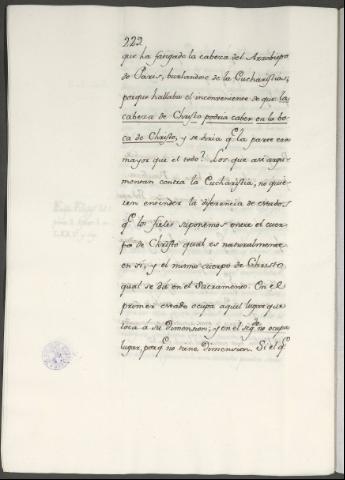 222
que ha sangrado la cabeza del Arzobispo
de Paris, burlandose de la Eucharistia,
porque hallaba el inconveniente de que la
cabeza de Christo podria caber en la bo-
ca de Christo, y se daria qe la parte era
mayor que el todo? Los que asi argu-
mentan contra la Eucharistia, no quie-
ren entender la diferencia de estados
qe los fieles suponemos entre el cuer-
po de Christo qual es naturalmente
en sí, y el mismo cuerpo de Christo
qual se da en el Sacramento. En el
primer estado ocupa aquel lugar que
toca á su dimension; y en el segdo no ocupa
lugar, porqe no tiene dimension. Si el qe